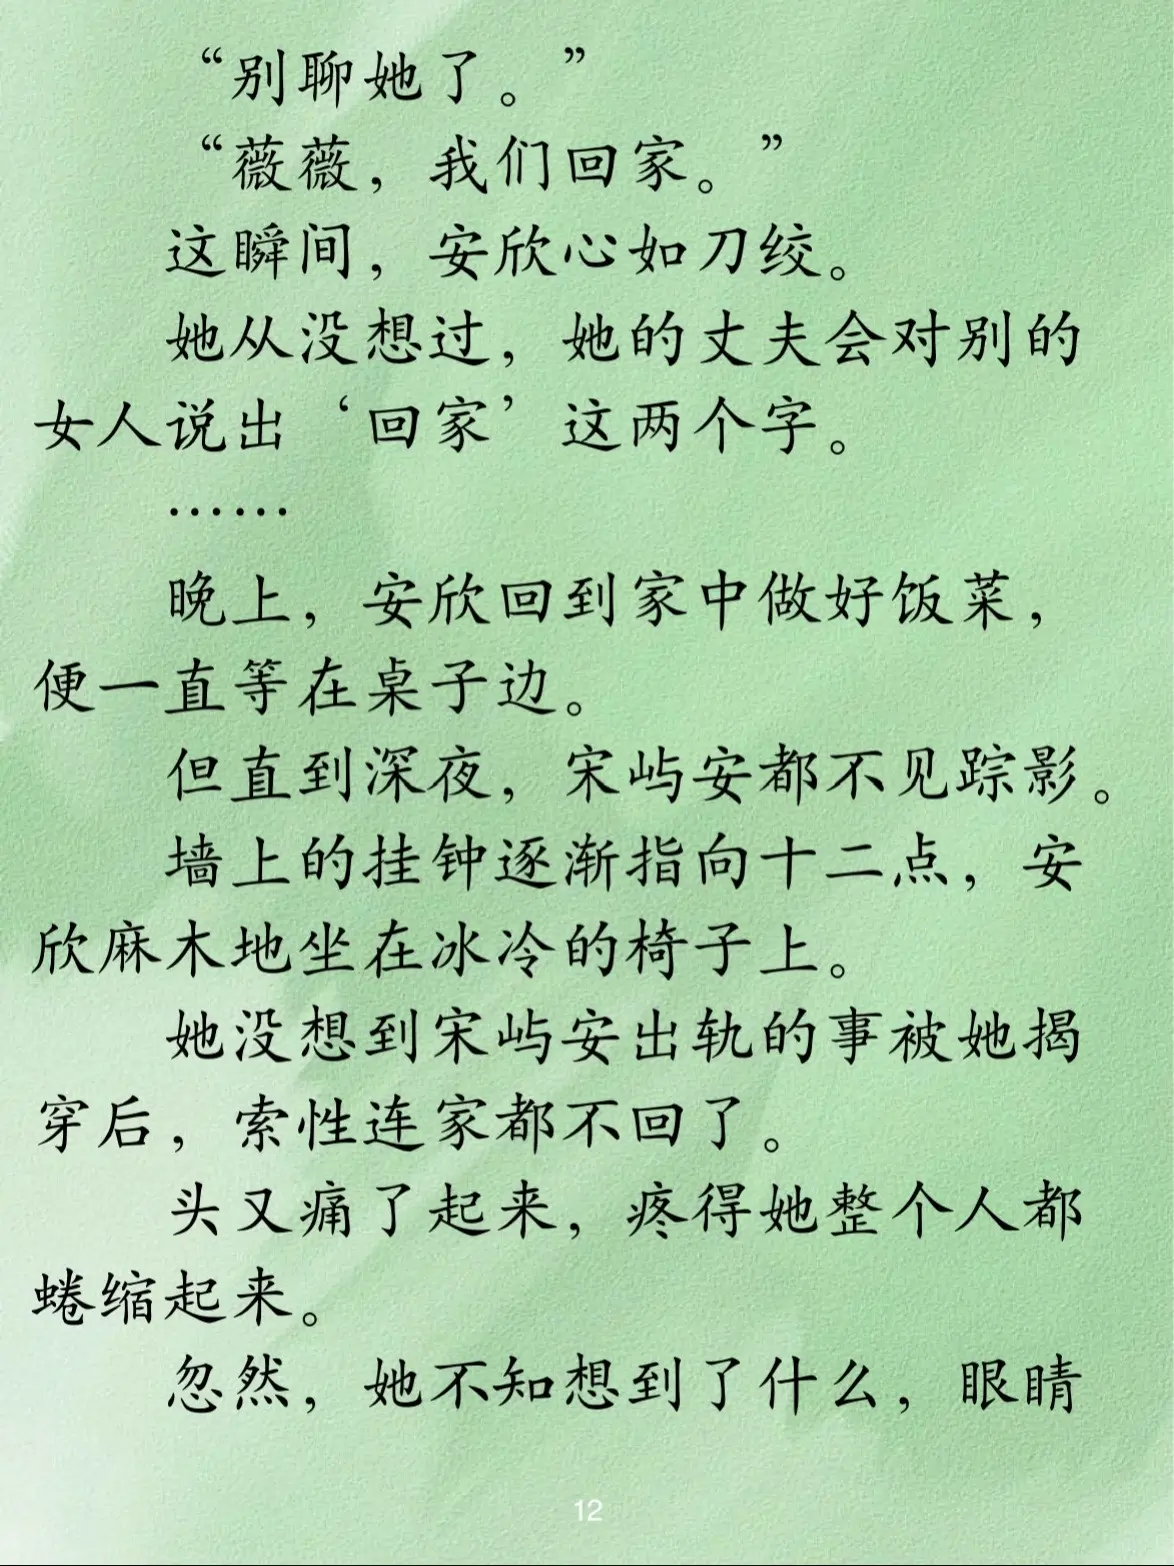 “别聊她了。”
“薇薇，我们回家。”
这瞬间，安欣心如刀绞。
她从没想过，她的丈夫会对别的
女人说出‘回家’这两个字。
……
晚上，安欣回到家中做好饭菜，
便一直等在桌子边。
但直到深夜，宋屿安都不见踪影。
墙上的挂钟逐渐指向十二点，安
欣麻木地坐在冰冷的椅子上。
她没想到宋屿安出轨的事被她揭
穿后，索性连家都不回了。
头又痛了起来，疼得她整个人都
蜷缩起来。
忽然，她不知想到了什么，眼睛
12